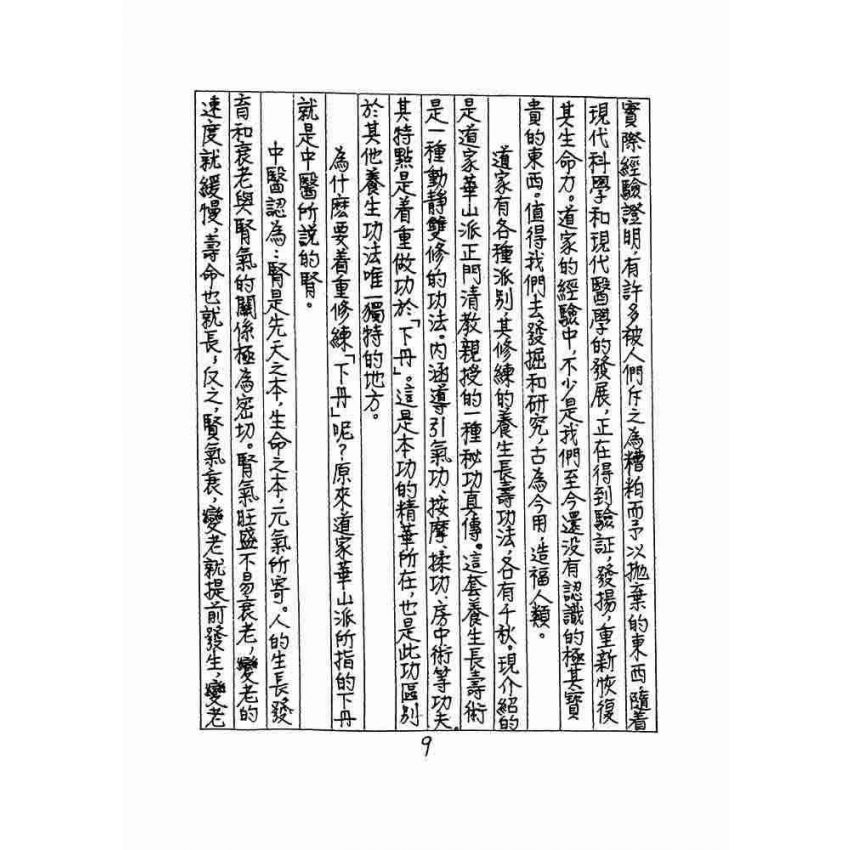 實際經驗證明,有許多被人們斥之為糟粕而予以拋棄的東西隨着
現代科學和現代醫學的發展,正在得到驗証,發揚,重新恢復
其生命力。道家的經驗中,不少是我們至今還没有認識的極其寶
貴的東西。值得我們去發掘和研究,古為今用,造福人類。
道家有各種派別,其修練的養生長壽功法,各有千秋。現介紹的
是道家華山派正門清教親授的一種秘功真傳。這套養生長壽術
是一種動靜雙修的功法。内涵導引氣功、按摩、揉功、房中術等功夫.
其特點是着重做功於「下丹」。這是本功的精華所在,也是此功區别
於其他養生功法唯一獨特的地方。
為什麽要着重修練「下丹」呢?原來道家華山派所指的下丹
就是中醫所説的腎。
中醫認為:腎是先天之本,生命之本,元氣所寄。人的生長發
育和衰老與腎氣的關係極為密切。腎氣旺盛不易衰老,變老的
速度就緩慢,壽命也就長,反之,腎氣衰,變老就提前發生,變老
9